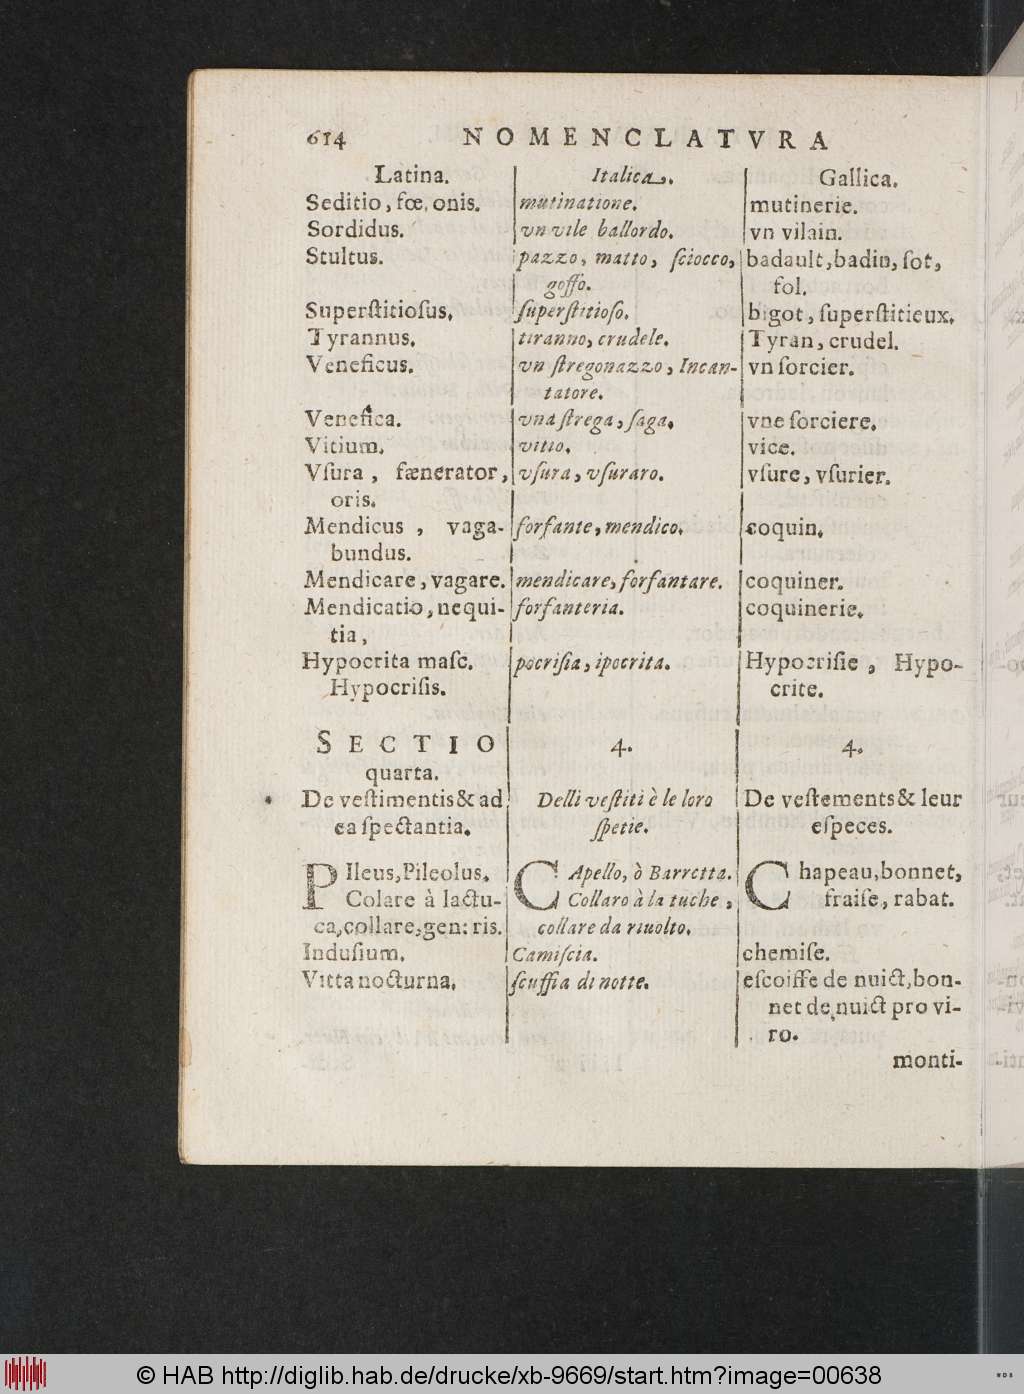 614 NOMENCLATVRA
Latina. Italica. Gallica.
Seditio, fœ, onis. mutinatione. mutinerie.
Sordidus. vn vile ballordo. vn vilain.
Stultus. pazzo, matto, ſciocco, badault, badin, ſot,
goffo. fol.
Superſtitioſus. ſuperſtitioſo. bigot, ſuperſtitieux.
Tyrannus. tiranno, crudele. Tyran, crudel.
Veneficus. vn ſtregonazzo, Incan- vn ſorcier.
tatore.
Venefica. vna ſtrega, ſaga. vne ſorciere.
Vitium. vitio. vice.
Vſura, fænerator, vſura, vſuraro. vſure, vſurier.
oris.
Mendicus, vaga- forfante, mendico. coquin.
bundus.
Mendicare, vagare. mendicare, forfantare. coquiner.
Mendicatio, nequi- forfanteria. coquinerie.
tia,
Hypocrita maſc. pocriſia, ipocrita. Hypocriſie, Hypo-
Hypocriſis. crite.
SECTIO 4. 4.
quarta.
De veſtimentis & ad Delli veſtiti è le loro De veſtements & leur
ea ſpectantia. ſpetie. eſpeces.
PIleus, Pileolus. CApello, ò Barretta. Chapeau, bonnet,
Colare à lactu- Collaro à la tuche, fraiſe, rabat.
ca, collare, gen: ris. collare da riuolto.
Induſium. Camiſcia. chemiſe.
Vitta nocturna. ſcuffia di notte. eſcoiffe de nuict, bon-
net de nuict pro vi-
ro.
monti-
© HAB http://diglib.hab.de/drucke/xb-9669/start.htm?image=00638